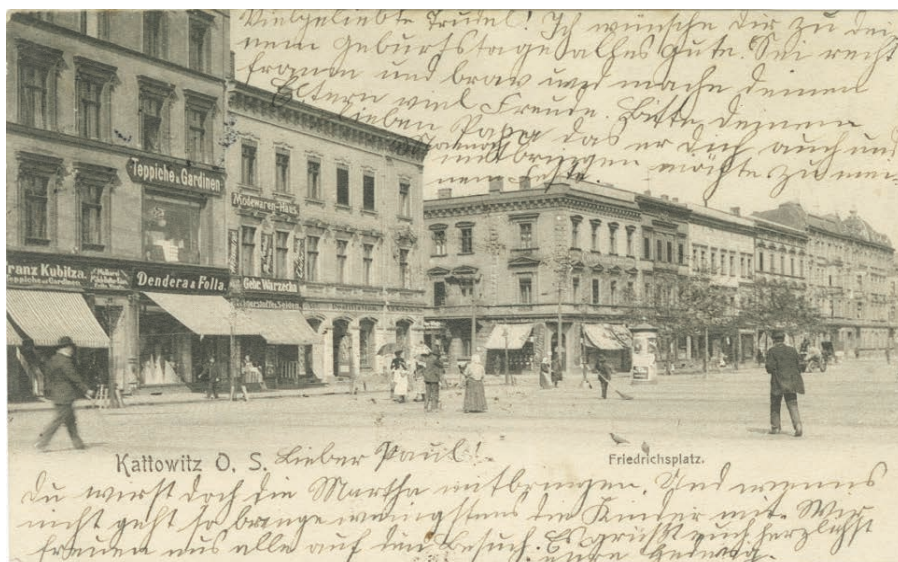 Vielgeliebte Trudel! Ich wünsche Dir zu dei-
nem Geburtstage alles Gute. Sei recht
und brav und mache deinen
Eltern viel Freude. Bitte deinen
lieben Papa, das er dich auch und
mitbringen möchte zu mei-
nem Feste.
Teppiche & Gardinen
Modewaren-Haus
Franz Kubitza.
Teppiche & Gardinen
Dendera & Folla.
Gebr. Warzecha
Kattowitz O. S.
Lieber Paul!
Friedrichsplatz.
Du wirst doch die Martha mitbringen. Und wenns
nicht geht so bringe wenigstens die Kinder mit. Wir
freuen uns alle auf den Besuch. Es grüßt euch herzlichst
eure Hedwig.